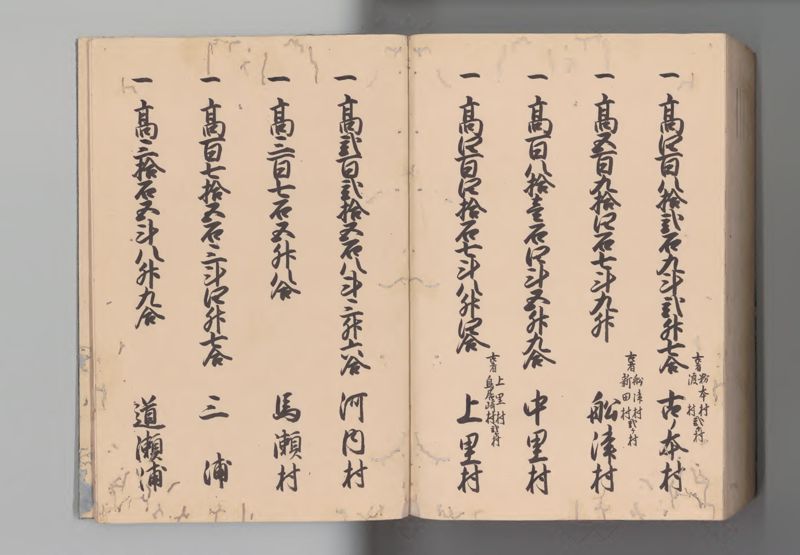 一 高四百八拾弐石九斗弐升七合 古ノ本村
一 高五百九拾四石七斗九升 船津村
古者 船津村 新田村 弐ヶ村
一 高百八拾壱石四斗五升九合 中里村
一 高四百四拾石七斗八升四合 上里村
古者 上里村 鳥居崎村 弐ヶ村
一 高弐百弐拾五石八斗三升六合 河内村
一 高三百七石五升八合 馬瀬村
一 高百七拾五石三斗四升七合 三浦
一 高三拾石五斗八升九合 道瀬浦